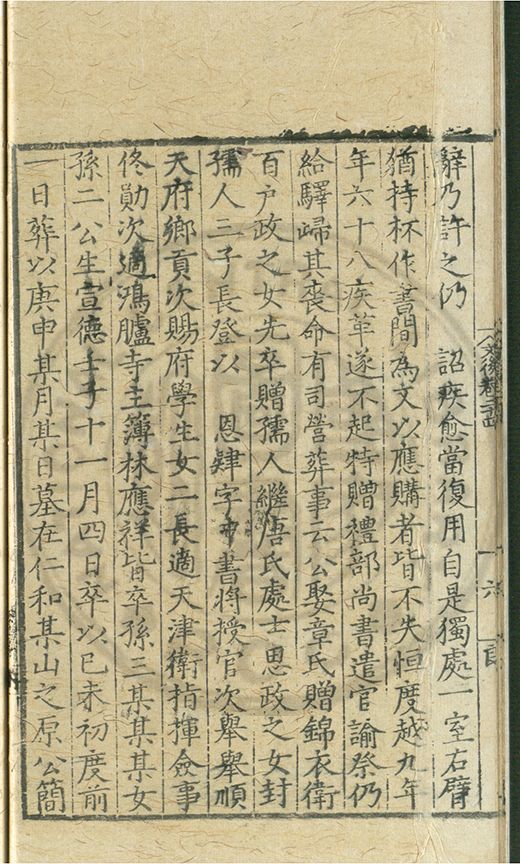 辭乃許之仍　詔疾愈當復用自是獨處一室右臂
猶持杯作書間為文以應購者皆不失恒度越九年
年六十八疾革遂不起特贈禮部尚書遣官諭祭仍
給驛歸其喪命有司營葬事云公娶章氏贈錦衣衛
百户政之女先卒贈孺人繼唐氏處士思政之女封
孺人三子長登以　恩肄字中書將授官次舉舉順
天府鄉貢次賜府學生女二長適天津衛指揮僉事
佟勛次適鴻臚寺主簿林應祥皆卒孫三某某某女
孫二公生宣德壬子十一月四日卒以巳未初度前
一日葬以庚申某月某日墓在仁和某山之原公簡
六